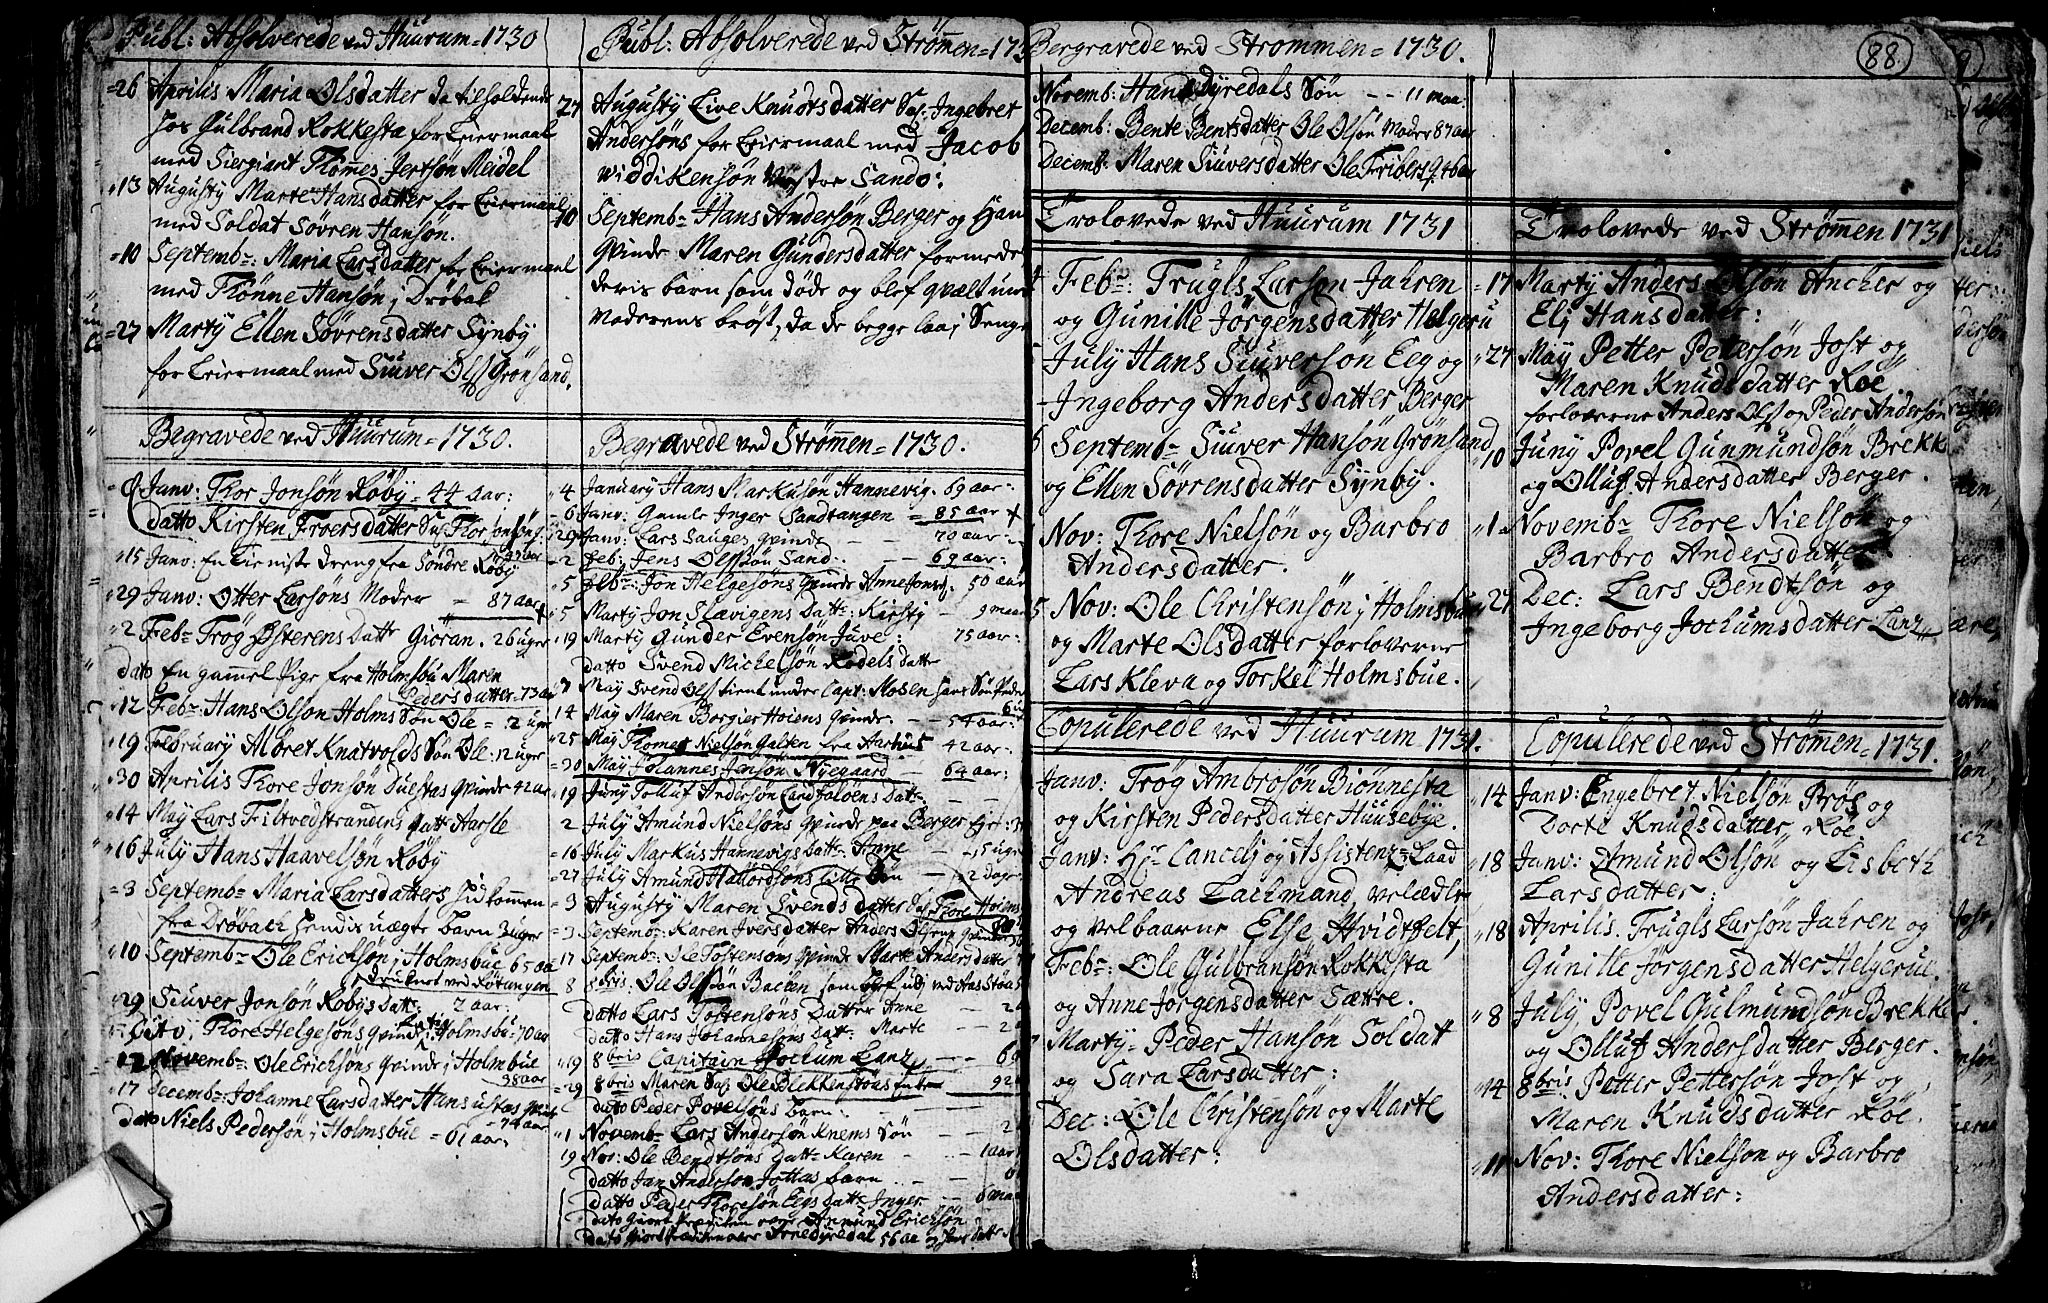 Publ: Absolverede ved Huurum = 1730
=26 Aprilis Maria Olsdatter da tilholdende
hos Gulbrand Rokkesta for Leiermaal
med Siergiant Thomes Jertsøn Meidel
"13 Augusty Marte Hansdatter for Leiermaal
med Soldat Søvren Hansøn.
=10 Septembr: Maria Larsdatter for Leiermaal
med Thønne Hansøn i Drøbak
=27 Marty Ellen Søvrensdatter Synby
for Leiermaal med Siuver Ols Grønsand.
Begravede ved Huurum = 1730.
Janv: Thor Jonsøn Røby = 44 aar:
datto Kirsten
"15 Janv: En Lierniste dreng fra Søndre Røby
"29 Janv: Otter Larsøns Moder = 87 aar
"2 Febr Trøg Østerens Datt Giøran. 26 uger
dato En gammel Pige fra Holmsbu Maren
Pedersdatter 73 aar
"12 Febr: Hans Olsøn Holms Søn Ole = 2 uger
"19 February Albret Knatvolds Søn Ole = 12 uger
"30 Aprilis Thore Jonsøn Duestas Qvinde 42 aar
"14 May Lars Filtvedstrandens Datt Aarsle
"16 July Hans Haavelsøn Røby
=3 Septembr Maria Larsdatters hidkommen
fra Drøbach hendis uægte barn 3 uger
"10 Septembr Ole Erichsøn i Holmsbue 65 aar
druknet ved Røtangen
"29 Siuver Jonsøn Røbys Datt: 2 aar:
Thore Helgesøns Qvinde i Holmsbu = 70 aar
"12 Novembr Ole Erichsøns Qvinde i Holmsbue
38 aar
"17 Decembr: Johanne Larsdatter Hans
= 74 aar
Dato Niels Pedersøn i Holmsbue = 61 aar
Publ: Absolverede ved Strømmen = 173
27 Augusty Live Knudtsdatter Sal. Ingebret
Andersøns for Leiermaal med Jacob
Widdikensøn Sando:
10 Septembr Hans Andersøn Berger og Han
Qvinde Maren Gundersdatter formede
deris barn som døde og blef qvælt und
Moderens brøst, da de begge laa i Senge
Begravede ved Strømmen = 1730.
"4 January Hans Markusøn Hannevig. 69 aar:
=6 Janv: Gamle Inger Sandtangen = 85 aar
"29 Janv: Lars Sauges Qvinde — 70 aar
=2 Feb: Jens Olssøn Sand: — 69 aar:
"5 Febr: Jon Helgesøns Qvinde Anne 50 aar
"5 Marty Jon Slavigens Datt: Kirsty — 9 maan
"19 Marty Gunder Evensøn Juve: 75 aar:
datto Svend Michelsøn Rødels datte
"7 May Svend Ols tient under Capt: Mosen hans Søn Peder
14 May Maren Borgier Høiens Qvinde: — 54 aar:
"25 May Thomas Nielsøn Galten fra Aarhuus 42 aar:
=30 May Johannes Jensøn Nyegaard — 64 aar:
"19 Juny Tolluf Andersøn Sandfaløens Datt: —
2 July Amund Nielsøns Qvinde paa Berger
=16 July Markus Hannevigs Datt: Anne — 15 uger
=27 July Amund Hallordsøns Lille Søn — 12 dage
=3 Augusty Maren Svends datter Sal Thore Høiens
=3 Septemb: Karen Iversdatter Anders Olsens Qvinde
"17 Septemb: Ole Tostensøns Qvinde Marte Andersdatter
8 8bris: Ole Olssøn Backen
datto Lars Tostensøns Datter Anne — 2
datto Hans Johannesøns Datt: Marte — 2
"19 8bris Capitain Jochum Lanz — 6
=29 8bris Maren Sal Ole Dickkenstøas Enke 92
datto Peder Povelsøns barn: —
"1 Novembr Lars Andersøn Knems Søn — 2
19 Nov: Ole Bendtsøns Datt: Karen — 1 aar
datto Jan Andersøn Tottas barn —
datto Peder Thoresøn Eegs datt: Inger — 6 maan
dato Giort Prædiken over Amund Erichsøn
Begravede ved Strømmen = 1730.
88
Novemb: Hans Dyredals Søn — 11 maa:
Decemb: Bente Bentsdatter Ole Olsøn Moder 87 aar
Decemb: Maren Siuversdatter Ole Fribers Q. 46 aar
Trolovede ved Huurum 1731
4 Febr: Trugls Larsøn Jahren
og Gunille Jørgensdatter Helgeru
5 July Hans Siuversøn Eeg og
Ingeborg Andersdatter Berger
Septembr Siuver Hansøn Grønsand
og Ellen Søvrensdatter Synby.
Nov: Thore Nielsøn og Barbro
Andersdatter.
5 Nov: Ole Christensøn i Holmsbue
og Marte Olsdatter forloverne
Lars Kleva og Torkel Holmsbue.
Copulerede ved Huurum 1731.
Janv: Trøg Ambrosøn Biønnesta
og Kirsten Pedersdatter Huusebye.
Janv: Hr Cancelj og Assistenz-Raad
Andreas Lachmand, velædle
og velbaarne Else Hvidtfelt,
Febr: Ole Gulbransøn Rokkesta
og Anne Jørgensdatter Sættre.
Marty Peder Hansøn Soldat
og Sara Larsdatter:
Dec: Ole Christensøn og Marte
Olsdatter:
Trolovede ved Strømmen 1731
=17 Marty Anders Olsøn Ancher og
Eli Hansdatter:
"27 May Petter Pettersøn Jost og
Maren Knudsdatter Røe.
forloverne Anders Ols og Peder Andersøn
"10 Juny Povel Gunmundsøn Brekk
og Olluf Andersdatter Berger.
"1 Novembr Thore Nielsøn og
Barbro Andersdatter
"27 Dec: Lars Bendtsøn og
Ingeborg Jochumsdatter Lanz
Copulerede ved Strømmen = 1731.
"14 Janv: Engebret Nielsøn Brøs og
Dorte Knudsdatter Røe
"18 Janv: Amund Olsøn og Lisbeth
Larsdatter:
"18 Aprilis. Trugls Larsøn Jahren og
Gunille Jørgensdatter Helgerue.
"8 July Povel Gulmundsøn Brekke
og Olluf Andersdatter Berger.
"14 8bris Petter Pettersøn Jost og
Maren Knudsdatter Røe
"11 Nov: Thore Nielsøn og Barbro
Andersdatter: